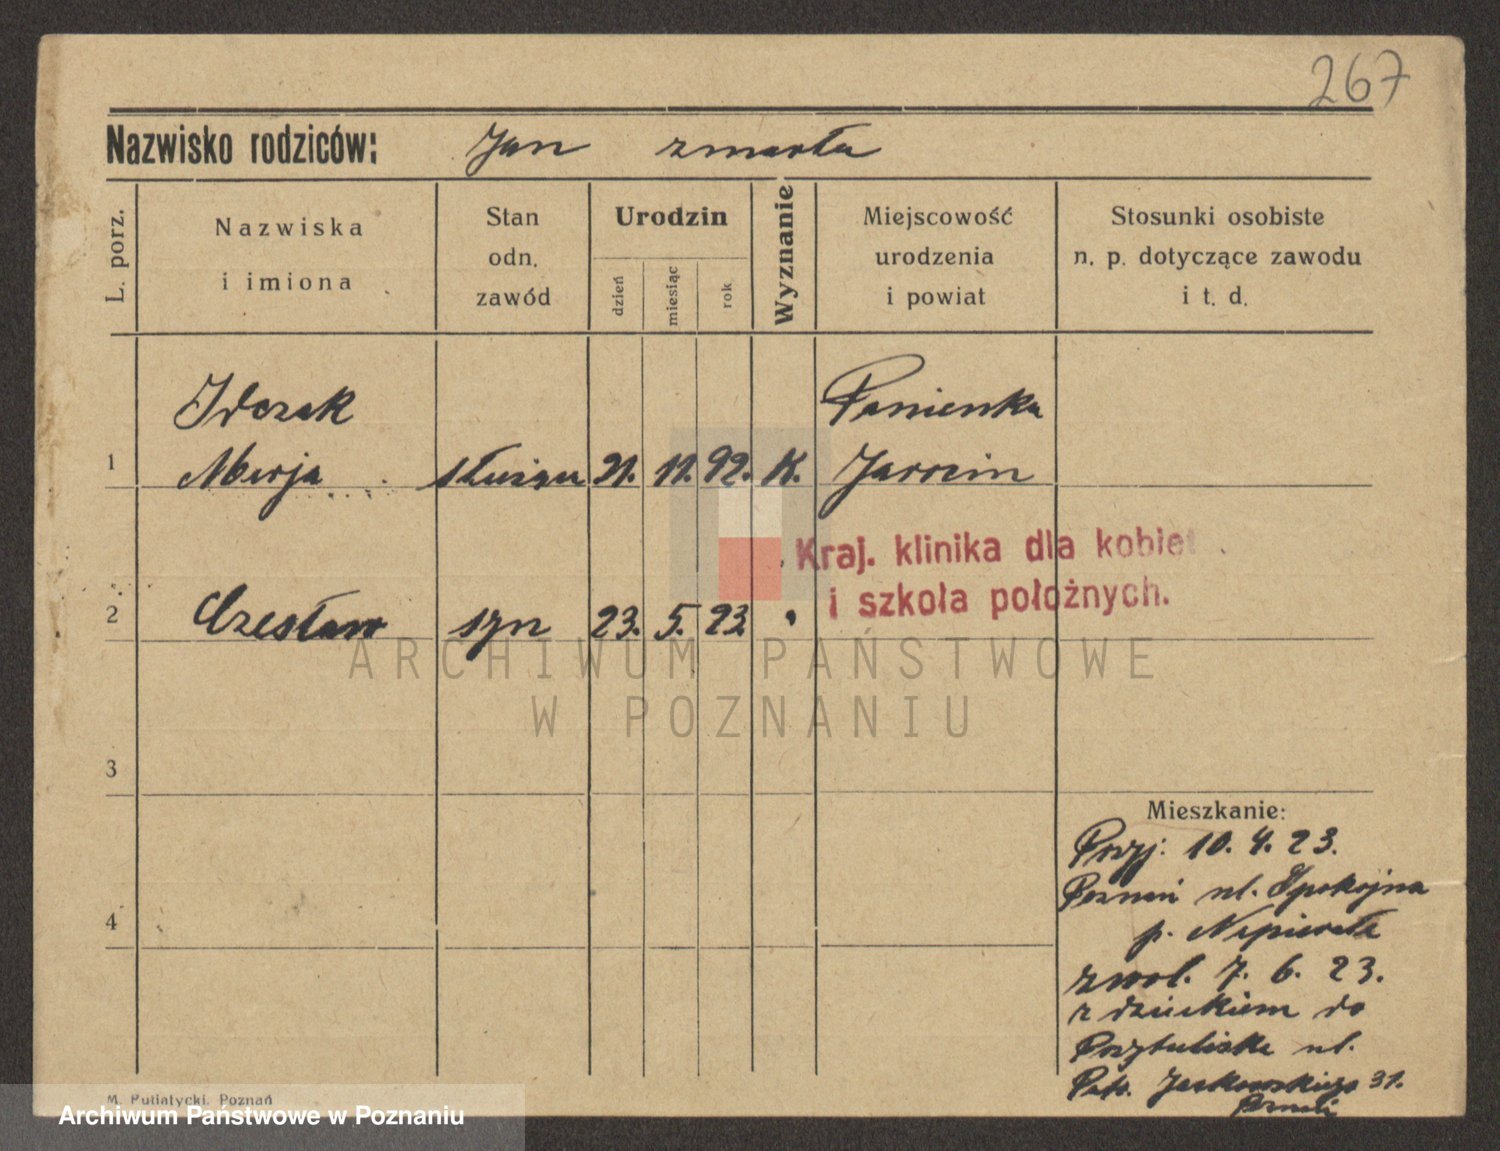 267
Nazwisko rodziców: Jan zmarła
L. porz.
Nazwiska
i imiona
Stan
odn.
zawód
Urodzin
dzień
miesiąc
rok
Wyznanie
Miejscowość
urodzenia
i powiat
Stosunki osobiste
n. p. dotyczące zawodu
i t. d.
Idczak Panienka
1 Marja służąca 21. 11. 92. K. Jarocin
Kraj. klinika dla kobiet
i szkoła położnych.
2 Czesław syn 23. 5. 23.
ARCHIWUM PAŃSTWOWE
W POZNANIU
3
Mieszkanie:
Przyj: 10. 4. 23.
Poznań ul. Spokojna
4
p. Napierała
zwol. 7. 6. 23.
z dzieckiem do
Przytuliska ul.
Jackowskiego 31.
M. Putiatycki, Poznań
Archiwum Państwowe w Poznaniu